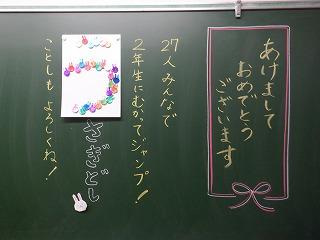 あけまして
おめでとう
ございます
27人 みんなで
2年生にむかってジャンプ!
さぎどし
ことしも よろしくね!